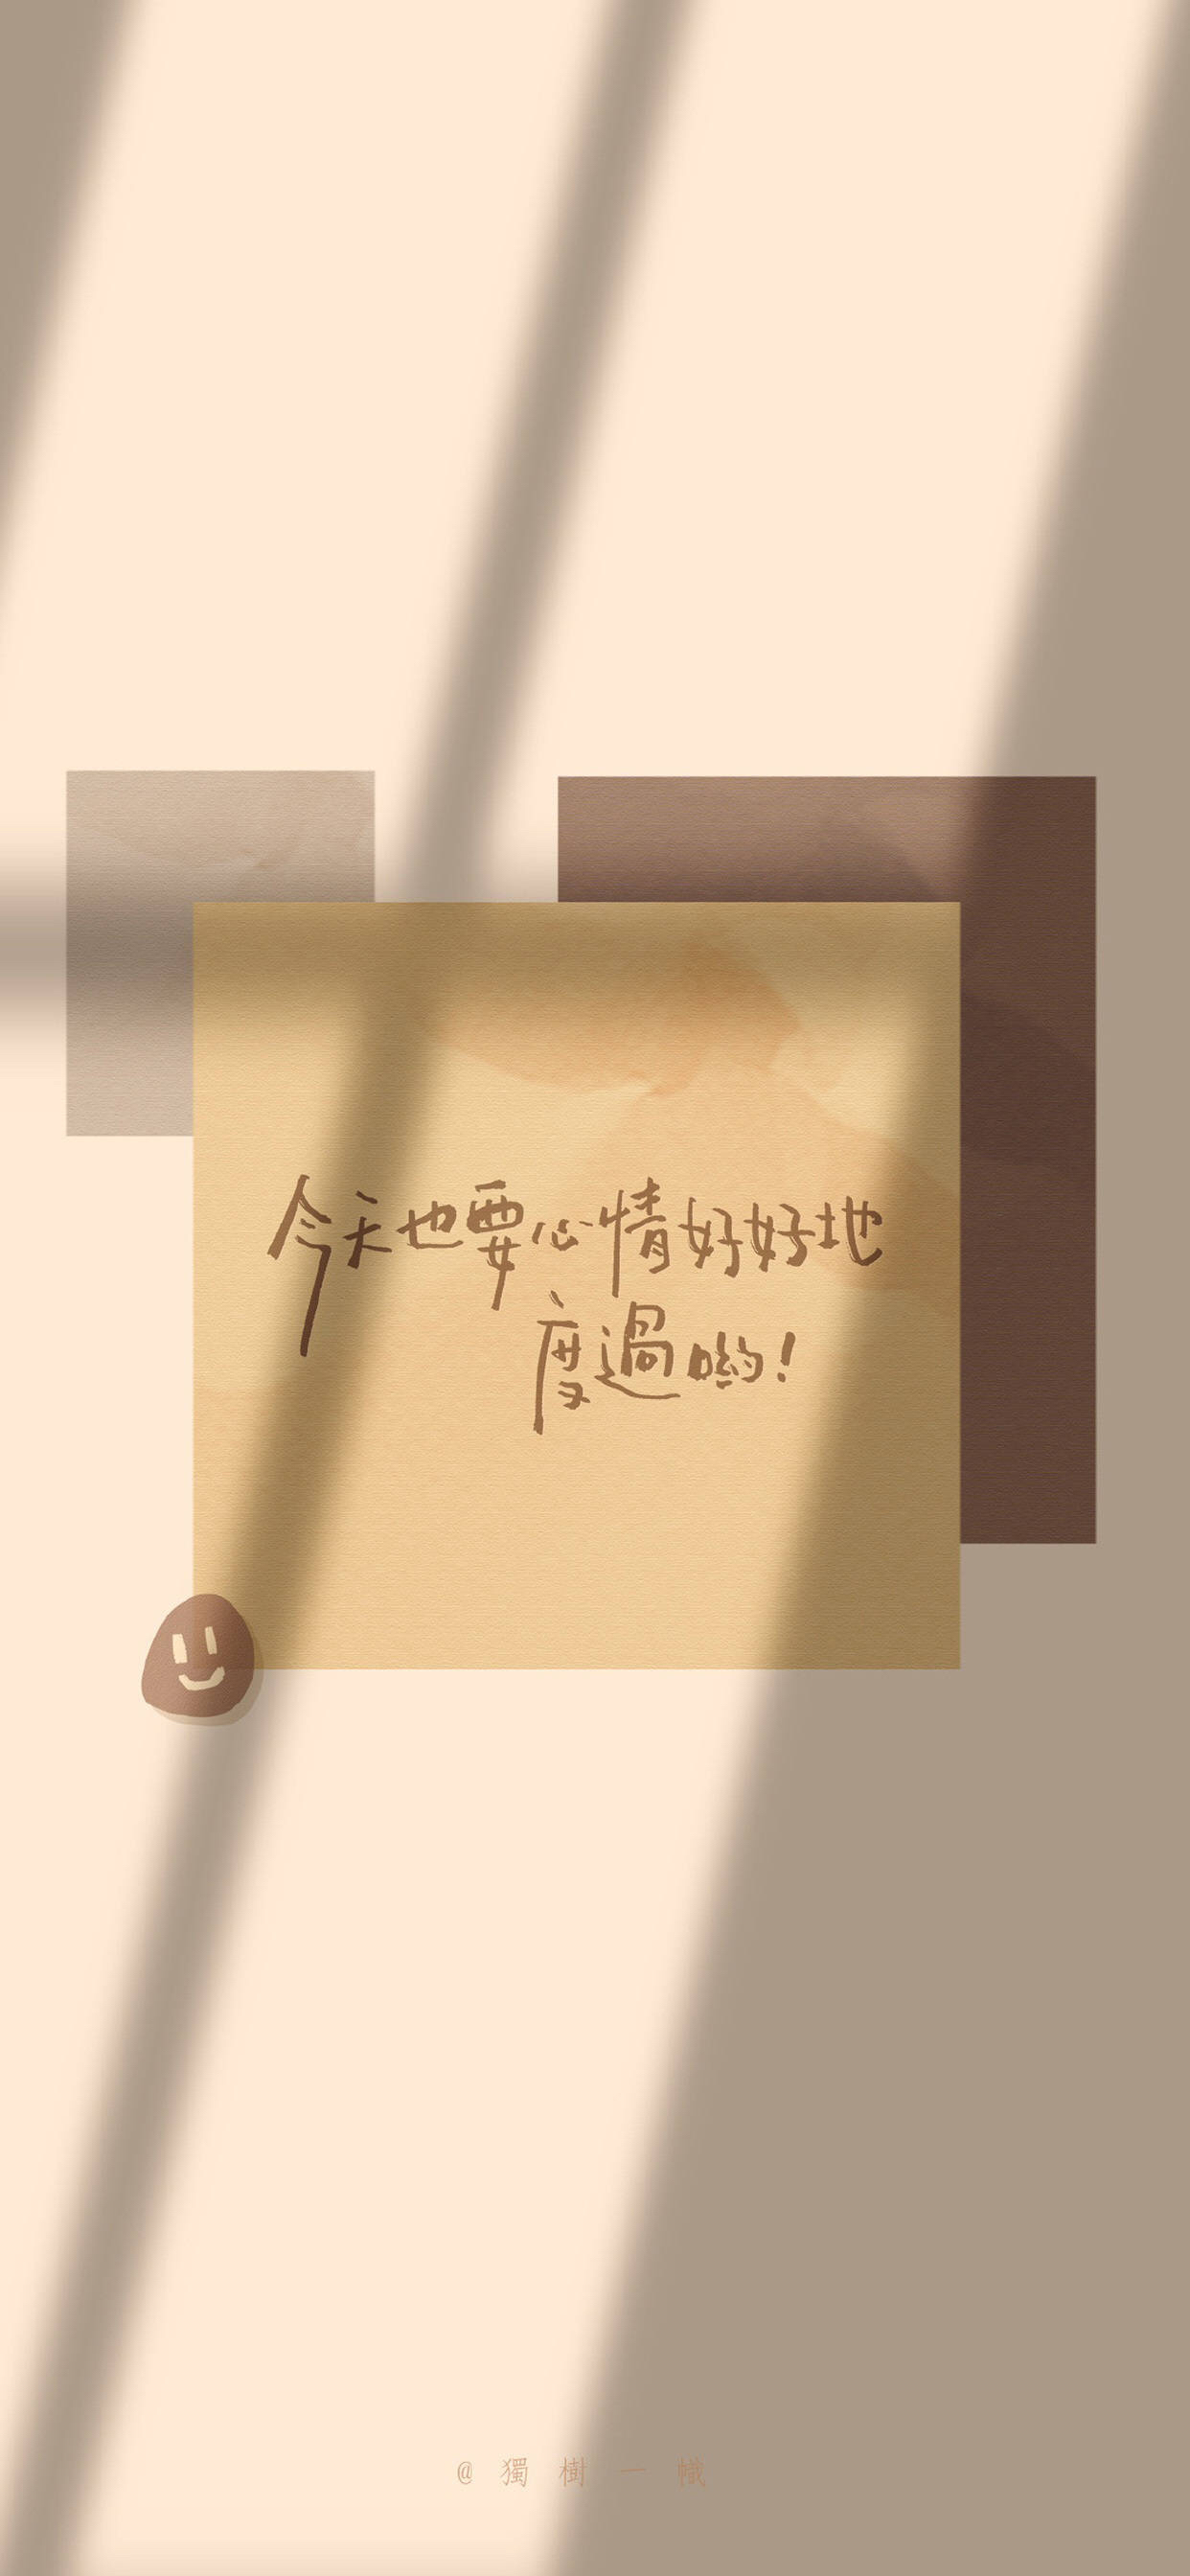 今天也要心情好好地
度過喲！
@獨樹一幟